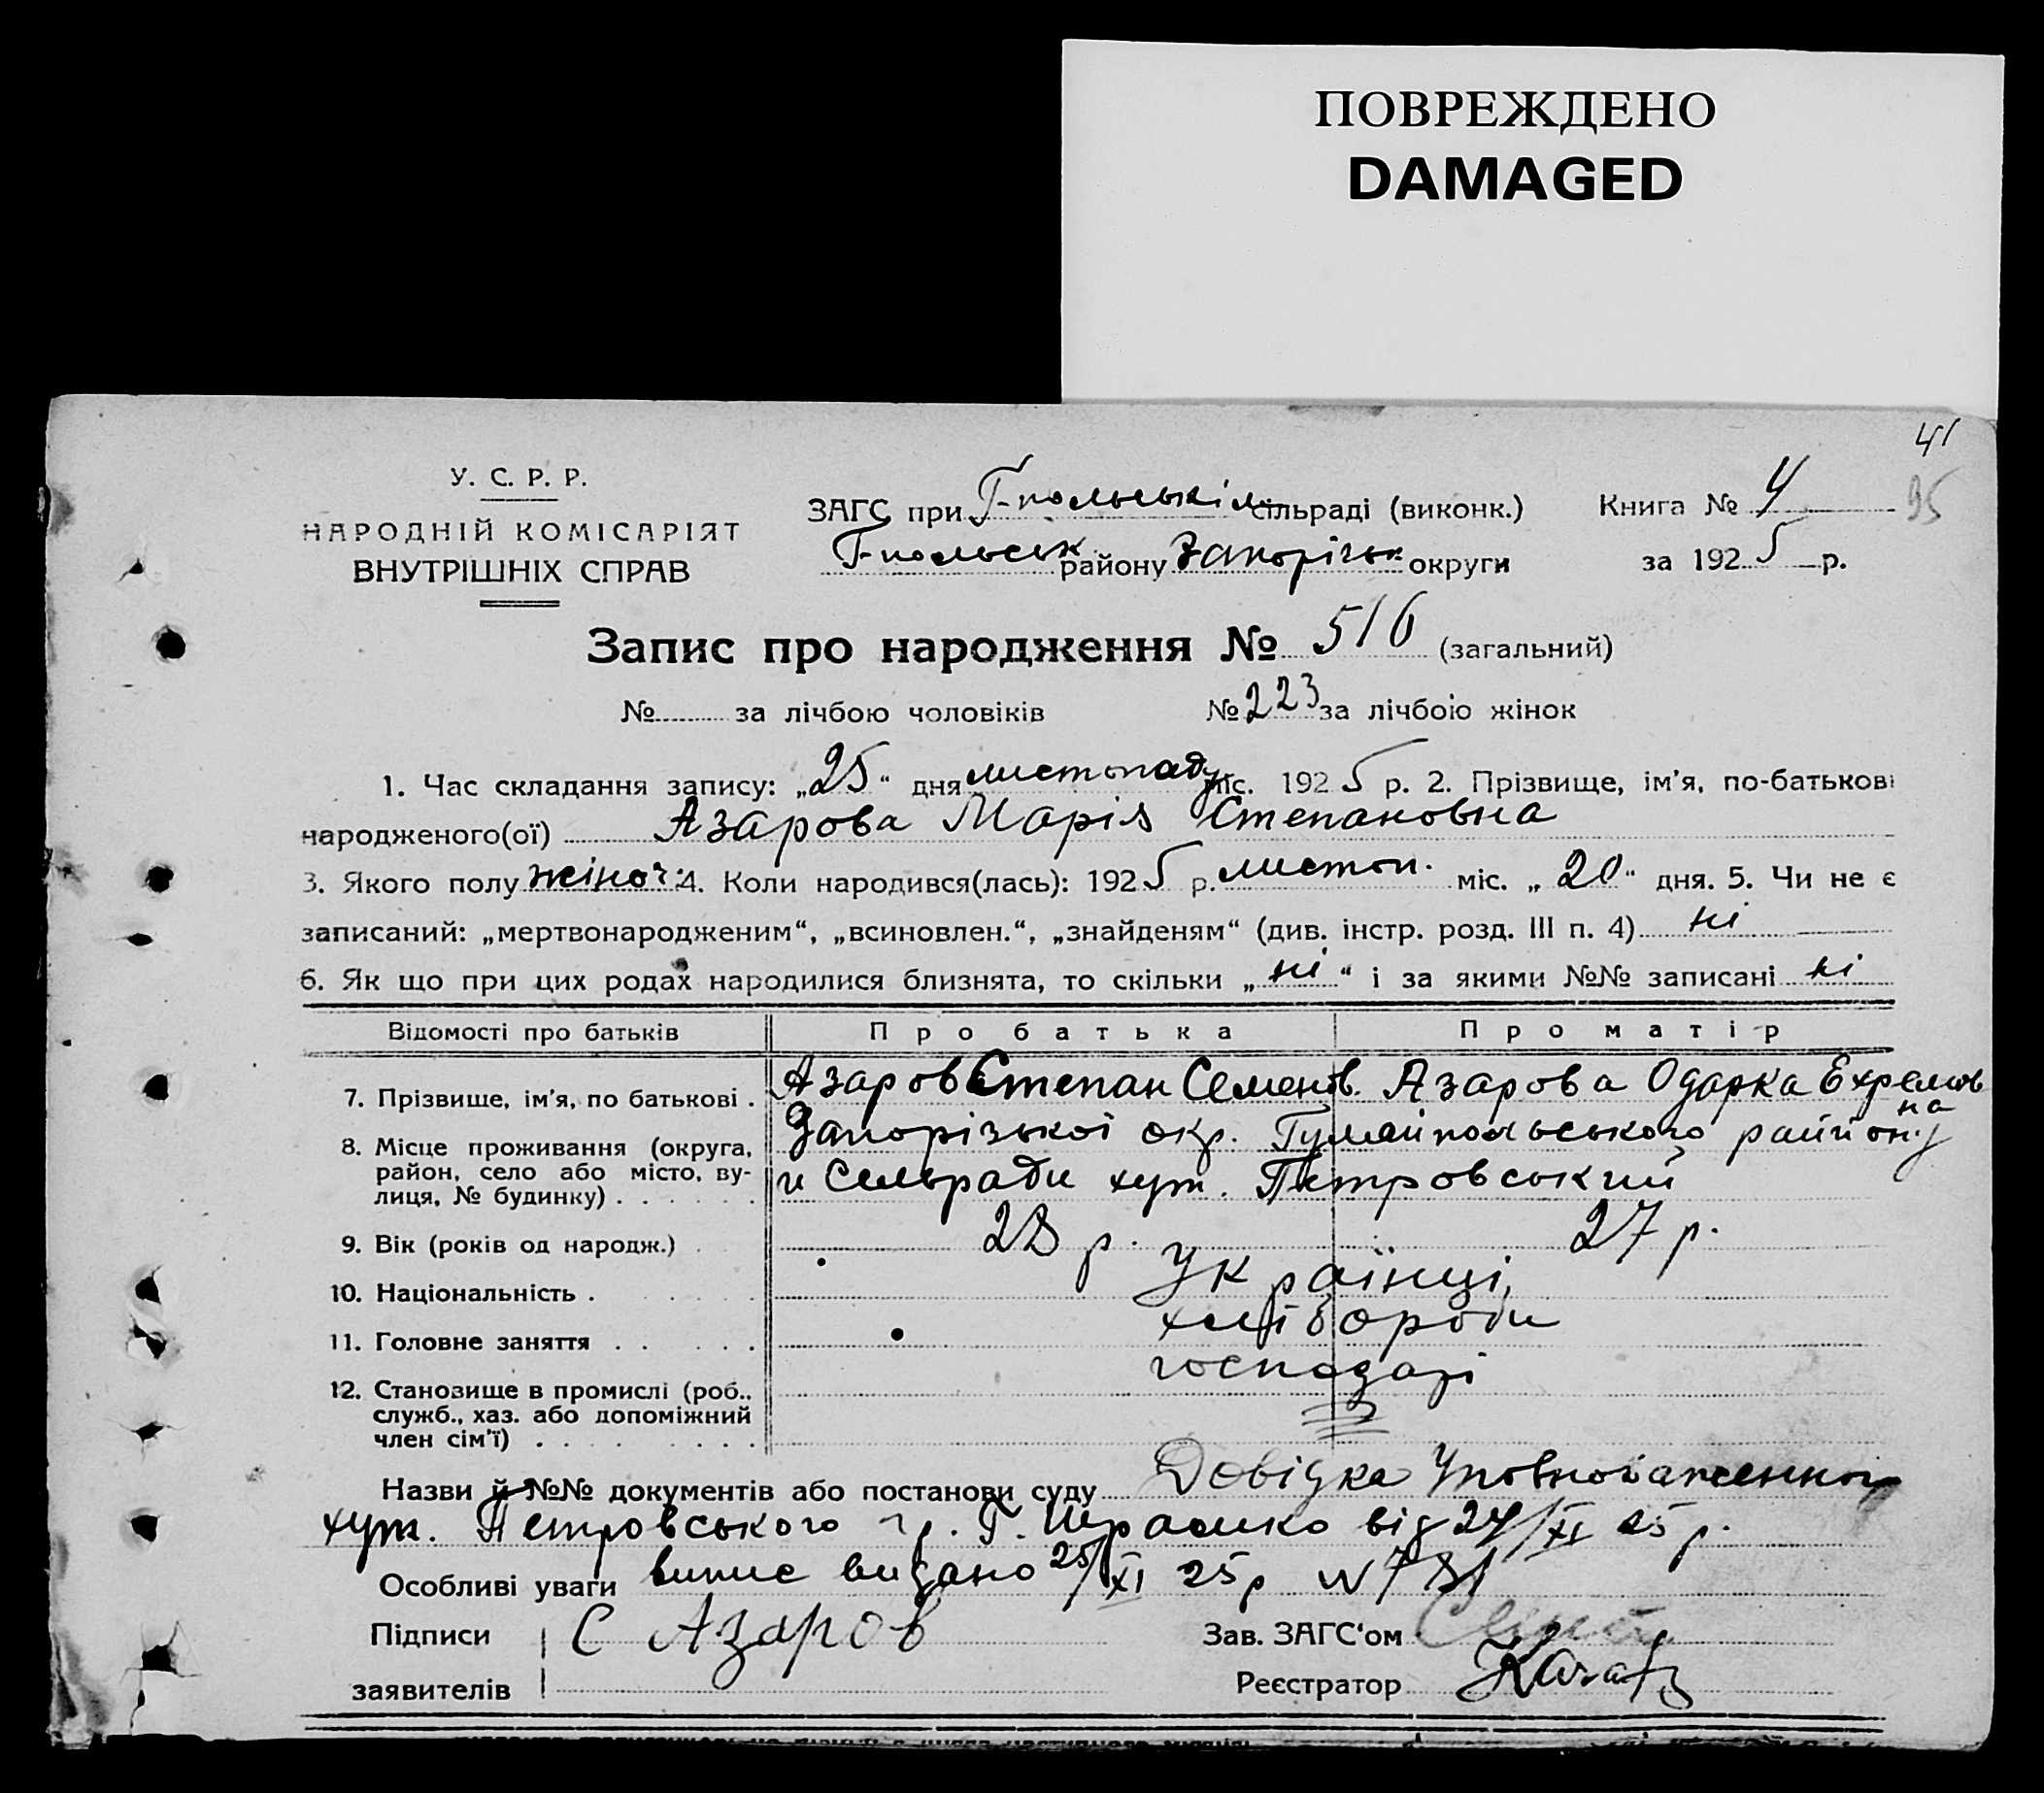 ПОВРЕЖДЕНО
DAMAGED
41
95
У. С. Р. Р.
НАРОДНІЙ КОМІСАРІЯТ
ВНУТРІШНІХ СПРАВ
ЗАГС при Г-польськім сільраді (виконк.) Книга № 4
Г-польськ району Запорізьк округи за 1925 р.
Запис про народження № 516 (загальний)
№ за лічбою чоловіків № 223 за лічбою жінок
1. Час складання запису: „25“ дня листопаду міс. 1925 р. 2. Прізвище, ім'я, по-батькові
народженого(ої) Азарова Марія Степановна
3. Якого полу жіноч. 4. Коли народився(лась): 1925 р. листоп. міс. „20“ дня. 5. Чи не є
записаний: „мертвонародженим“, „всиновлен.“, „знайденям“ (див. інстр. розд. III п. 4) ні
6. Як що при цих родах народилися близнята, то скільки „ні“ і за якими №№ записані ні
Відомості про батьків Про батька Про матір
7. Прізвище, ім'я, по батькові . Азаров Степан Семенов. Азарова Одарка Ехремовна
8. Місце проживання (округа, район, село або місто, вулиця, № будинку) . Запорізької окр. Гуляйпольського району
и Сельради хут. Петровський
9. Вік (років од народж.) 28 р. 27 р.
10. Національність . Українці,
11. Головне заняття . . хлібороби
12. Становище в промислі (роб., служб., хаз. або допоміжний член сім'ї) . господарі
Назви й №№ документів або постанови суду Довідка Уповноваженного
хут. Петровського гр. Г. від 24/XI 25 р.
Особливі уваги випис видано 25/XI 25 р № 781
Підписи С Азаров Зав. ЗАГС'ом
заявителів Реєстратор